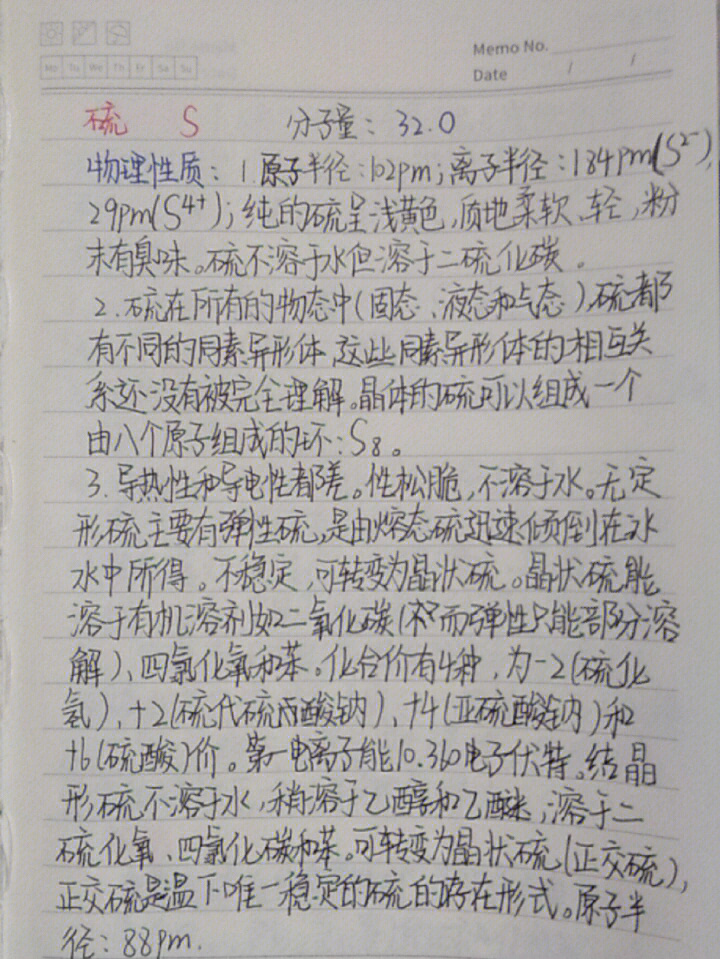 Memo No.
Mo Tu We Th Fr Sa Su
Date / /
硫 S 分子量：32.0
物理性质：1.原子半径:102pm；离子半径：184pm(S²⁻),
29pm(S⁴⁺)；纯的硫呈浅黄色,质地柔软、轻,粉
末有臭味。硫不溶于水但溶于二硫化碳。
2.硫在所有的物态中(固态、液态和气态),硫都
有不同的同素异形体,这些同素异形体的相互关
系还没有被完全理解。晶体的硫可以组成一个
由八个原子组成的环:S₈。
3.导热性和导电性都差。性松脆,不溶于水。无定
形硫主要有弹性硫,是由熔态硫迅速倾倒在冰
水中所得。不稳定,可转变为晶状硫。晶状硫能
溶于有机溶剂如二氧化碳(而弹性只能部分溶
解)、四氯化氧和苯。化合价有4种,为-2(硫化
氢)、+2(硫代硫酸钠)、+4(亚硫酸钠)和
+6(硫酸)价。第一电离子能10.360电子伏特。结晶
形硫不溶于水,稍溶于乙醇和乙醚,溶于二
硫化氧、四氯化碳和苯。可转变为晶状硫(正交硫),
正交硫是温下唯一稳定的硫的存在形式。原子半
径：88pm.